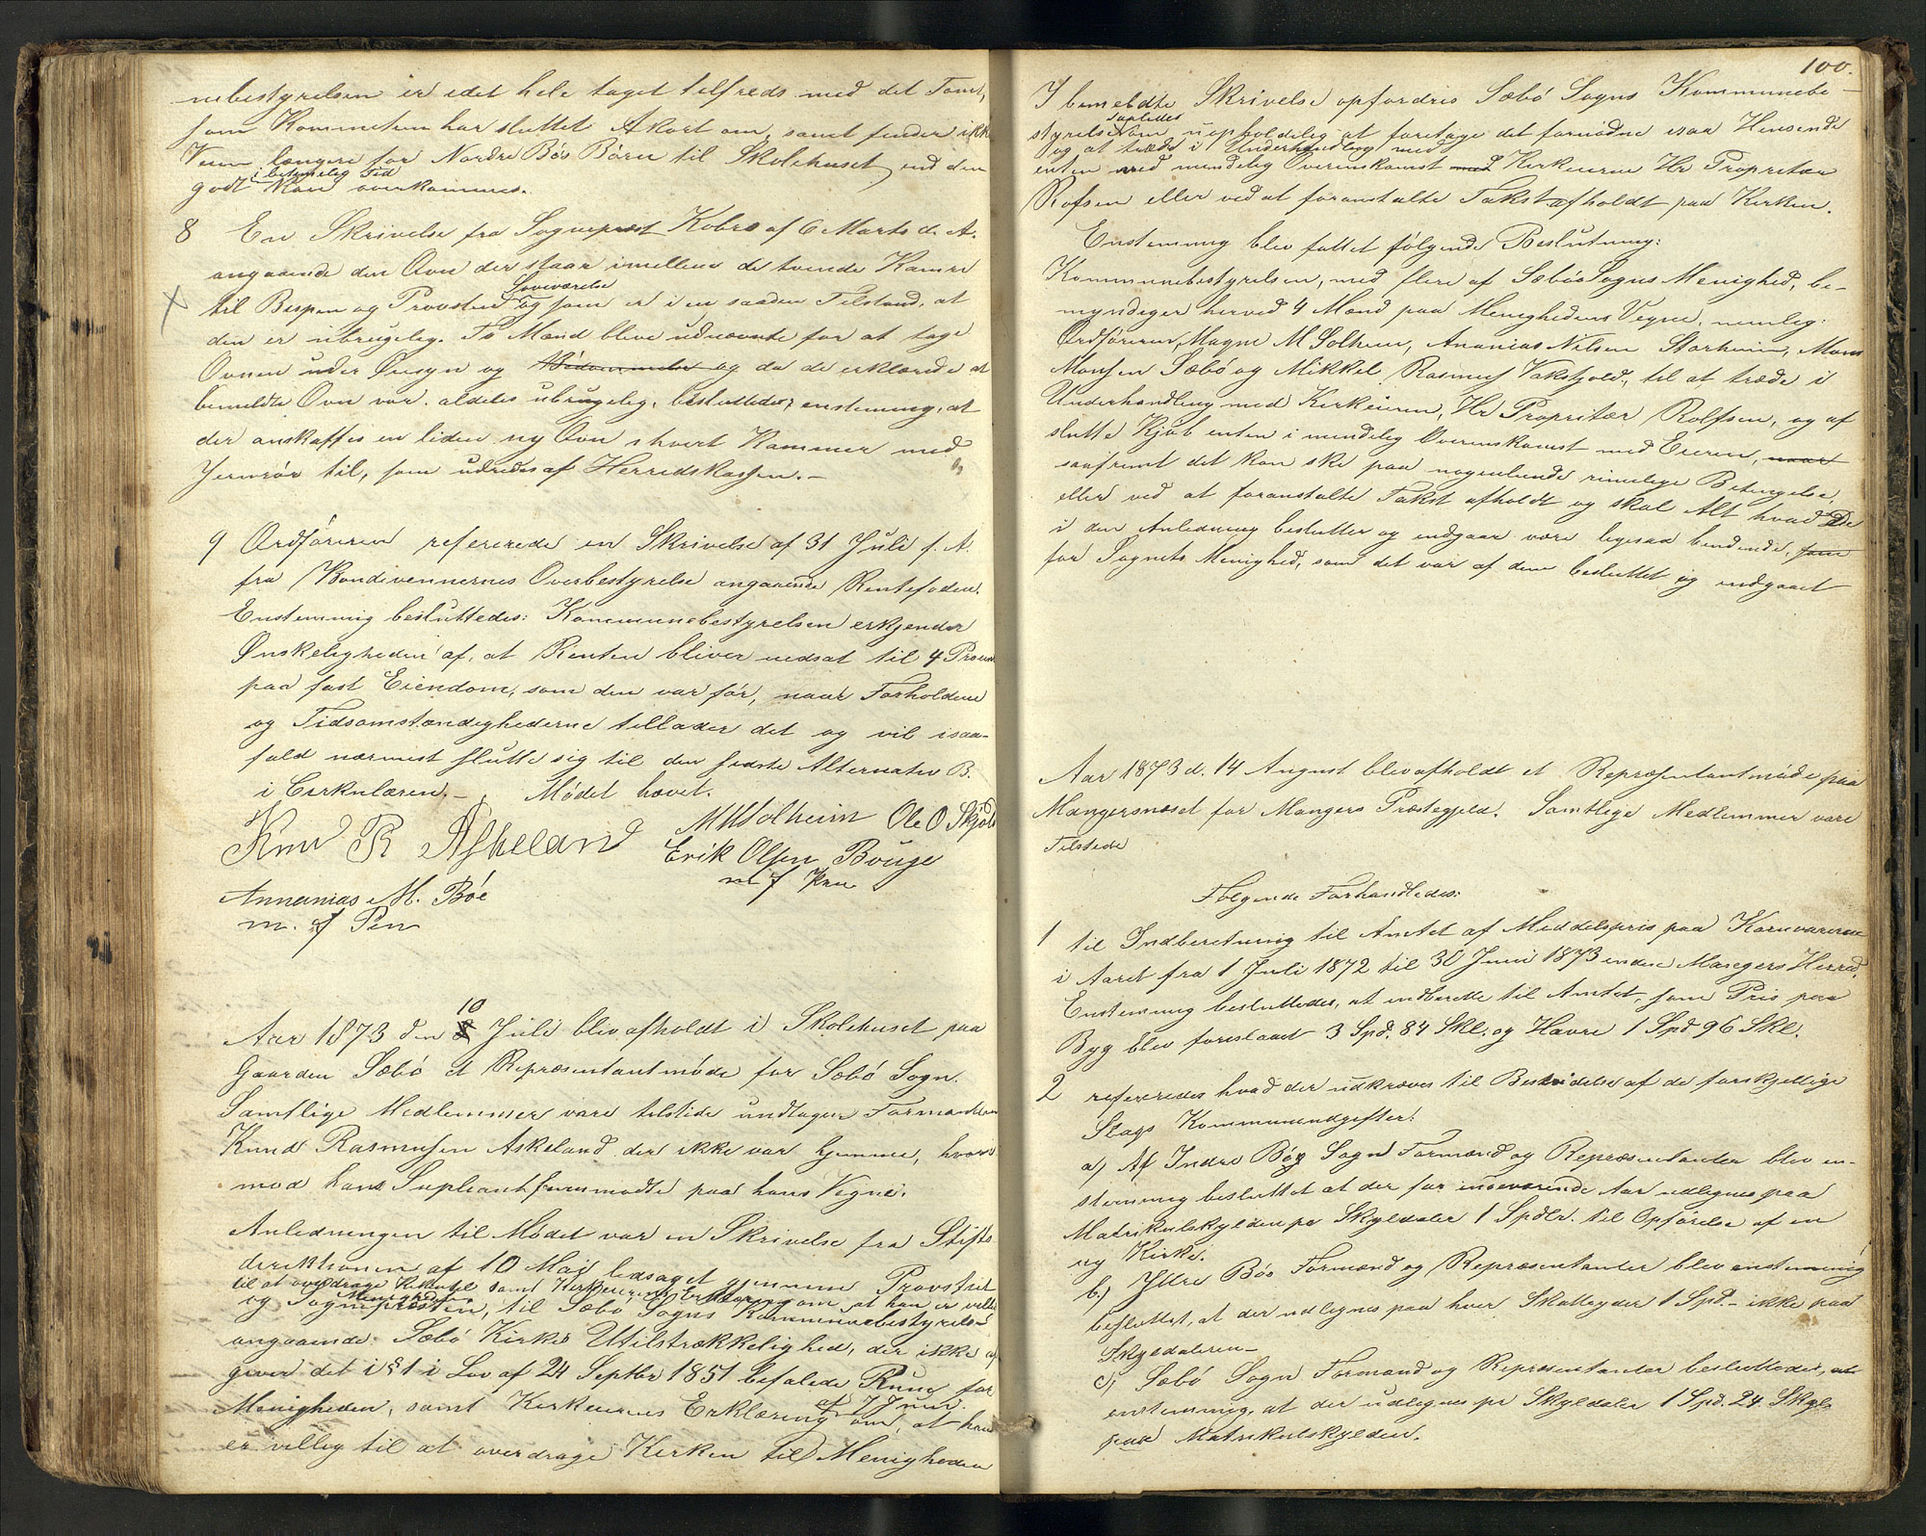 nebestyrelsen er idet hele taget tilfreds med det Tomt,
som Kommiteen har sluttet Akort om, samt finder ikke
Veien længere for Nordre Bøs Børn til Skolehuset, end den
i betimelig Tid
godt kan overkommes.
8 En Skrivelse fra Sognepræst Kobro af 6 Marts d. A.
angaaende den Ovn der staar imellem de tvende Kamre
Soveværelse
til Bispen og Provsten og som er i en saadan Tilstand, at
den er ubrugelig. To Mænd bleve udnævnte for at tage
Ovnen under Øiesyn og og da de erklærede at
bemeldte Ovn var aldeles ubrugelig, besluttedes enstemmig, at
der anskaffes en liden ny Ovn i hvert Kammer med
Jernrør til, som udredes af Herredskassen.-
9 Ordføreren refererede en Skrivelse af 31 Juli f. A.
fra Bondevennernes Overbestyrelse angaaende Rentefoden.
Enstemmig besluttedes: Kommunebestyrelsen erkjender
Ønskeligheden af, at Renten bliver nedsat til 4 Procent
paa fast Eiendom, som den var før, naar Forholdene
og Tidsomstændighederne tillader det og vil isaa-
fald nærmest slutte sig til den sidste Alternativ B.
i Cirkulæren.- Mødet hævet.
MMSolheim Ole O Skjold
Knud R Askeland
Erik Olsen Bouge
m f Pen
Annanias M. Bøe
m. f Pen
10
Aar 1873 den 8 Juli blev afholdt i Skolehuset paa
Gaarden Sæbø et Repræsentantmøde for Sæbø Sogn.
Samtlige Medlemmer vare tilstede undtagen Formanden
Knud Rasmusen Askeland der ikke var hjemme, hvori-
mod hans Supleant fremmødte paa hans Vegne.
Anledningen til Mødet var en Skrivelse fra Stifts
direktionen af 10 Mai ledsaget gjennem Provstiet
til at overdrage Kirken til samt Kirkeeierens Erklæring om, at han er villig
Menigheden
og Sognepræsten, til Sæbø Sogns Kommunebestyrelse
angaaende Sæbø Kirkes Utilstrækkelighed, der ikke af
giver det i §1 i Lov af 24 Septbr 1851 befalede Rum for
af 7 Juni
Menigheden, samt Kirkeeierens Erklæring om, at han
er villig til at overdrage Kirken til Menigheden
100.
I bemeldte Skrivelse opfordres Sæbø Sogns Kommunebe-
saaledes
styrelse om uopholdelig at foretage det fornødne isaa Henseende
og at træde i Underhandling med
enten ved mindelig Overenskomst med Kirkeeieren Hr Propritær
Rofsen eller ved at foranstalte Takst afholdt paa Kirken.
Enstemmig blev fattet følgende Beslutning:
Kommunebestyrelsen, med flere af Sæbø Sogns Menighed, be-
myndiger herved 4 Mænd paa Menighedens Vegne, nemlig:
Ordføreren, Magne M Solheim, Ananias Nilsen Storheim, Mons
Monsen Sæbø og Mikkel Rasmus Vakskjold, til at træde i
Underhandling med Kirkeeieren, Hr Propritær Rolfsen, og af
slutte Kjøb enten i mindelig Overenskomst med Eieren, naar
saafremt det kan ske paa nogenlunde rimelige Betingelse,
eller ved at foranstalte Takst afholdt og skal Alt hvad De
i den Anledning beslutter og indgaar være ligesaa bindende, som
for Sognets Menighed, som det var af dem besluttet og indgaaet
Aar 1873 d. 14 August blev afholdt et Repræsentantmøde paa
Mangersnæset for Mangers Præstegjeld. Samtlige Medlemmer vare
Tilstede
Følgende Forhandledes:
1 til Indberetning til Amtet af Middelspris paa Kornvarerne
i Aaret fra 1 Juli 1872 til 30 Juni 1873 inden Mangers Herred.
Enstemmig besluttedes, at indberette til Amtet, som Pris paa
Byg blev foreslaaet 3 Spd. 84 Skl. og Havre 1 Spd 96 Skl.
2 refereredes hvad der udkræves til Bestridelse af de forskjellige
Slags Kommuneudgifter:
a, Af Indre Bøe Sogns Formænd og Repræsentanter blev en-
stemmig besluttet at der for indeværende Aar udlignes paa
Matrikulskylden pr Skylddaler 1 Spdlr. til Opførelse af en
ny Kirke.
b, Ytre Bøs Formænd og Repræsentanter blev enstemmig
besluttet, at der udlignes paa hver Skatteyder 1 Spd.- ikke paa
Skylddaleren-
c, Sæbø Sogn Formænd og Repræsentanter besluttedes, at
enstemmig, at der udlignes pr Skylddaler 1 Spd. 24 Skgl.
paa Matrikulskylden.